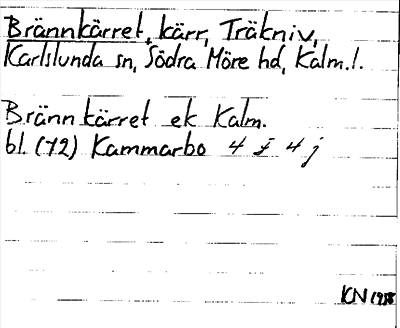 Brännkärret, kärr, Träkniv,
Karlslunda sn, Södra Möre hd, Kalm. l.
Brännkärret ek Kalm.
bl. (72) Kammarbo 4 I 4 j
KN 1938